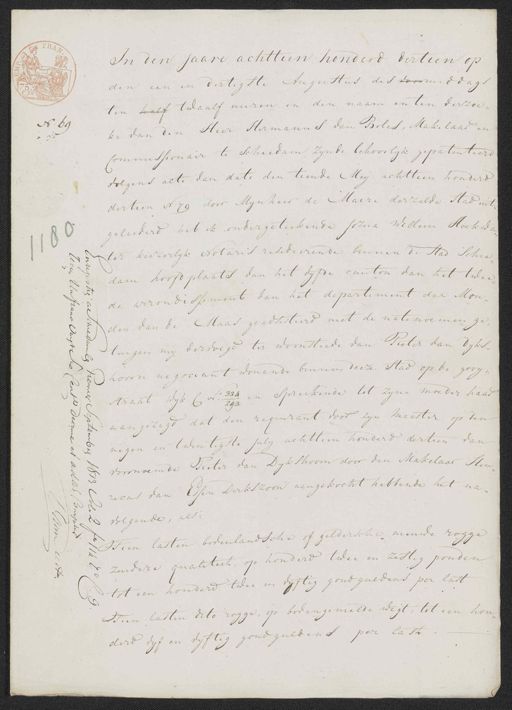 N 69
1180
In den jaare achttien honderd dertien op
den een en dertigste Augustus des voormiddags
ten half twaalf uuren in den naam en ten verzoe-
ke van den Heer Hermannus van Boles, Makelaar en
Commissionair te Schiedam zynde behoorlijk gepatenteerd
volgens acte van dato den tiende Mey achttien honderd
dertien N 79 door Mynheer de Maire derzelve Stad uit-
geleverd heb ik ondergeteekende Hoek
ter keizerlyk Notaris resideerende binnen de Stad Schie-
dam hoofdplaats van het vyfde canton van het twee-
de arrondissement van het departement der Mon-
den van de Maas geadsisteerd met de natenoemen ge-
tuigen my vervoegd ter woonstede van Pieter van Dyks-
hoorn negociant wonende binnen deze Stad op de hoog-
straat Wyk C N 324 en Spreekende tot zyne
292
aangezegd dat den requirant door zyn meester op den
negen en twentigste july achttien honderd dertien van
voornoemde Pieter van Dykshoorn door den Makelaar Hen-
ricus van Essen Dirkszoon aangekocht hebbende het na-
volgende, als:
Tien lasten bovenlandsche of geldersche rogge
zuivere qualiteit, op honderd twee en zestig ponden
tot een honderd twee en vyftig goudguldens per last
Tien lasten dito rogge, op bovengemelde wigt tot een hon-
derd vyf en vyftig goudguldens per last.